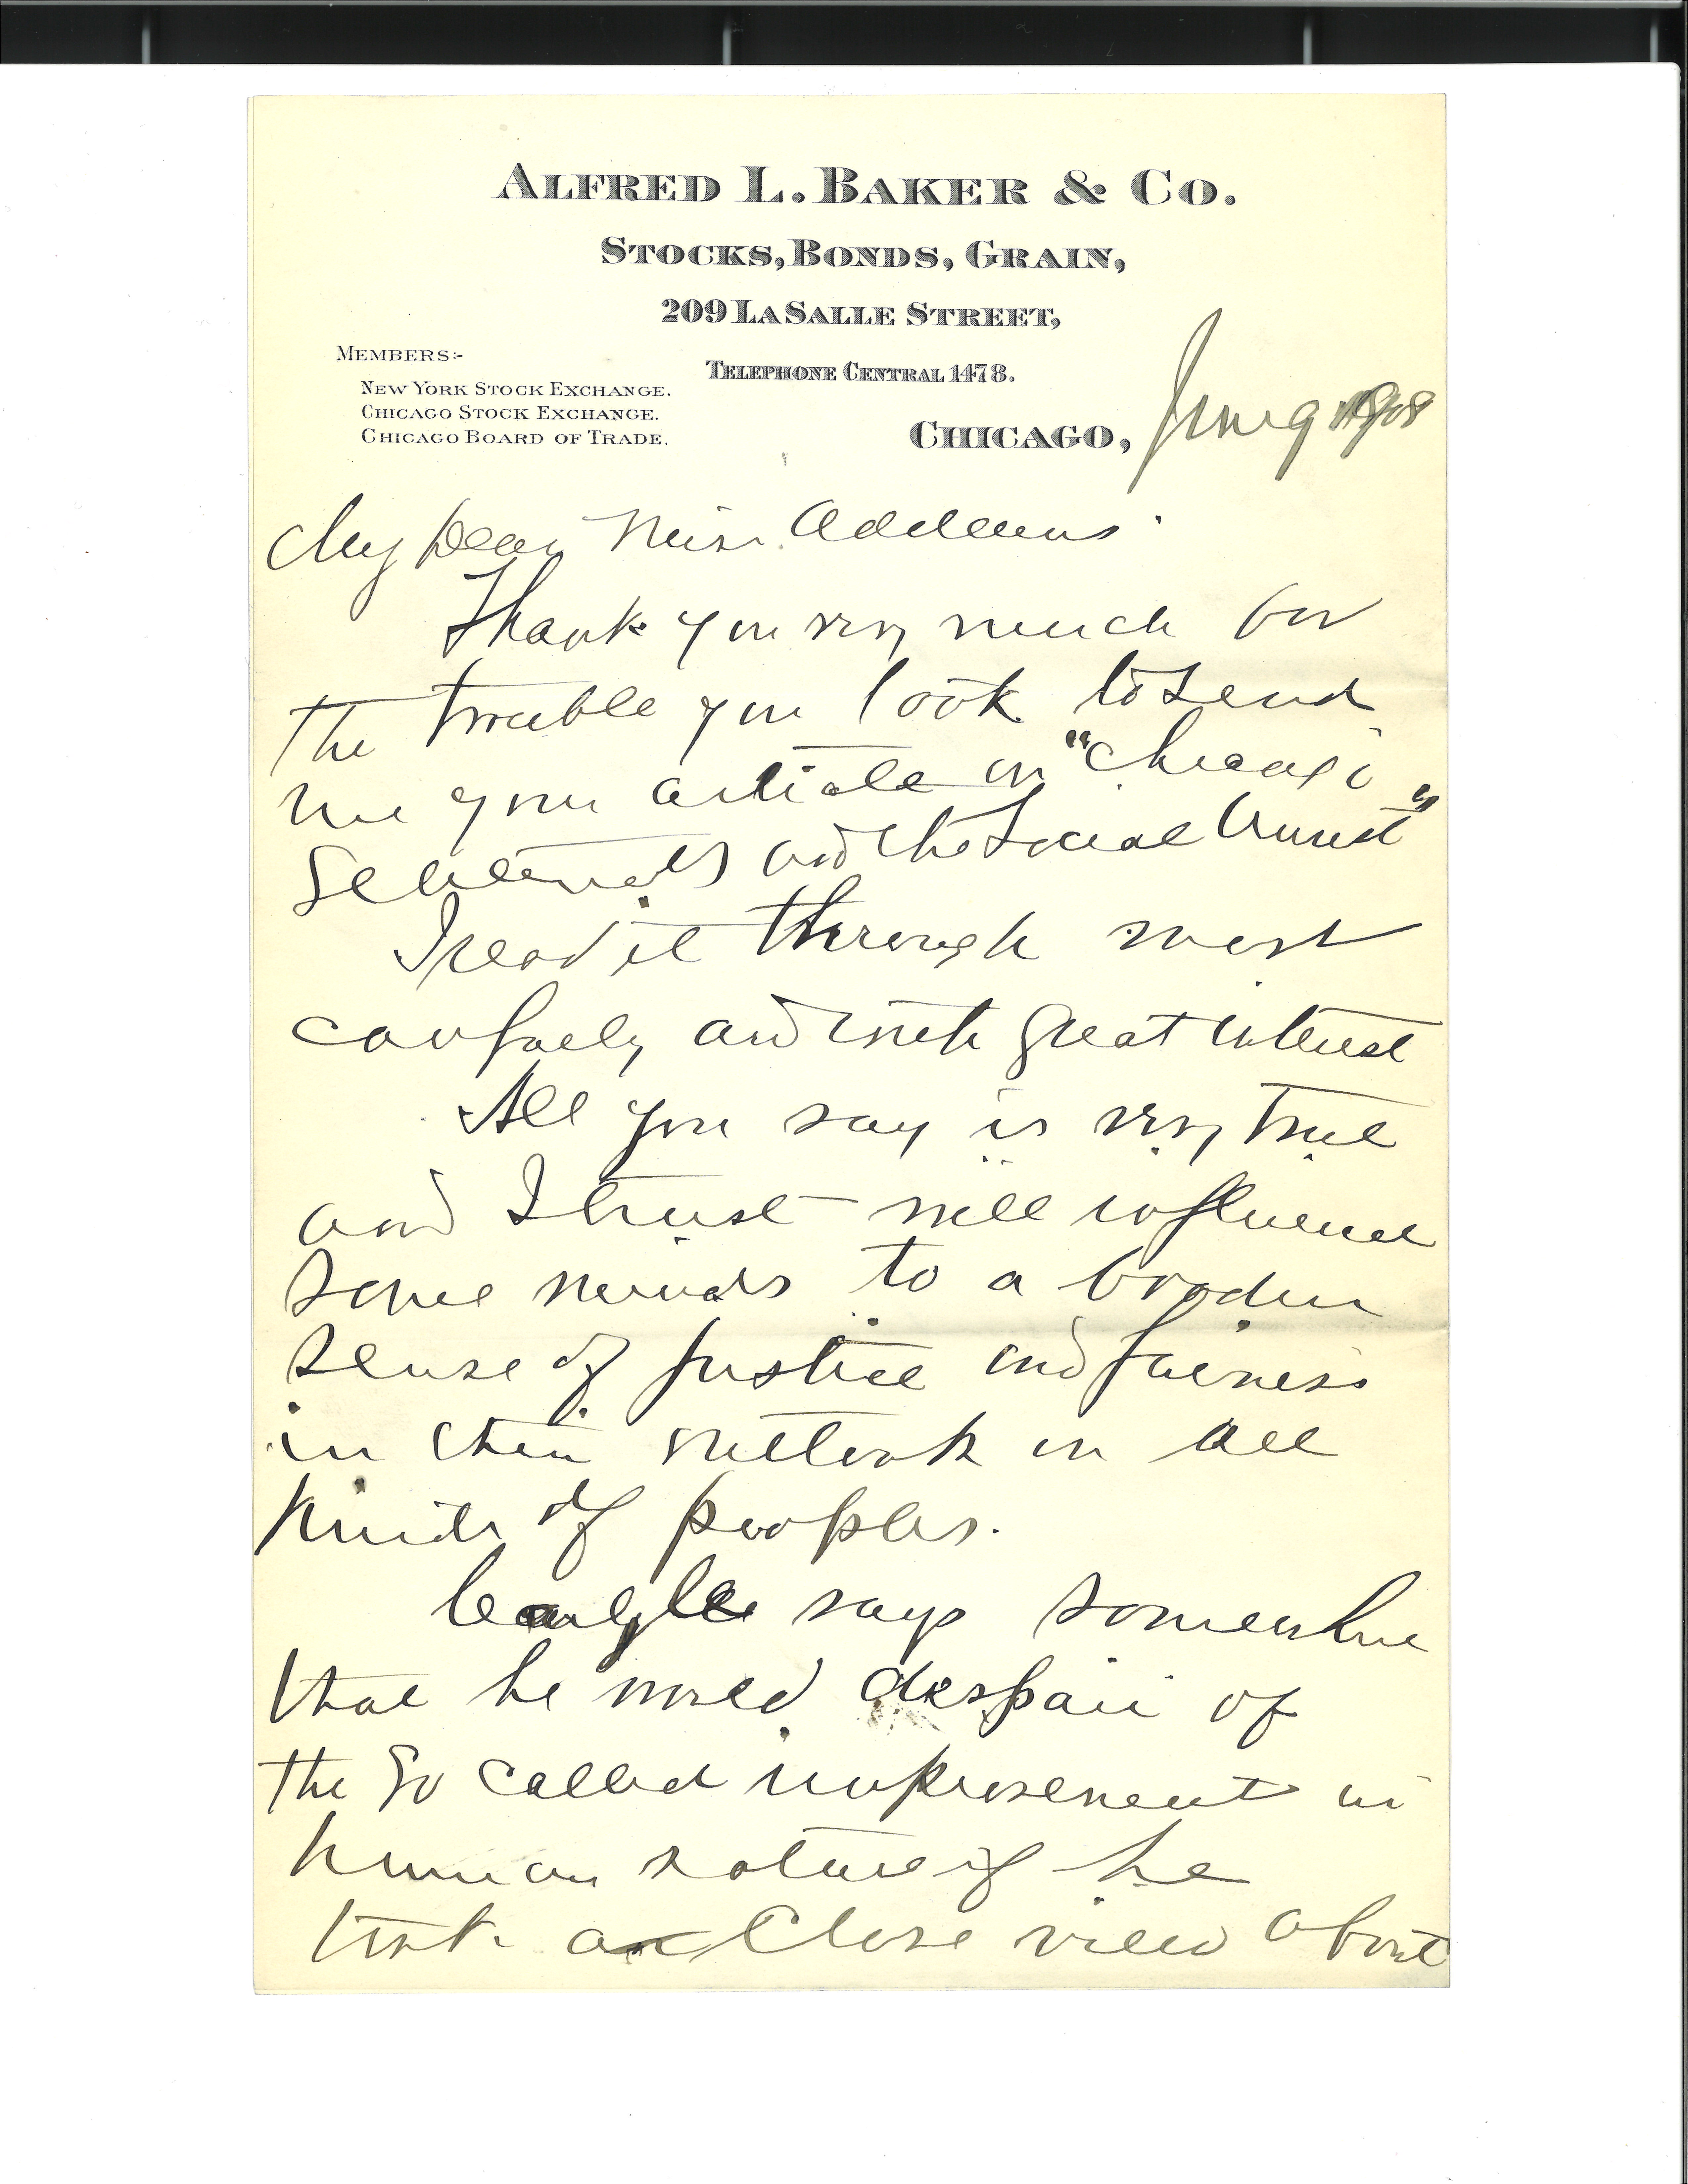 ALFRED L. BAKER & CO.
STOCKS, BONDS, GRAIN,
209 LASALLE STREET,
MEMBERS:-
TELEPHONE CENTRAL 1478.
NEW YORK STOCK EXCHANGE.
CHICAGO STOCK EXCHANGE.
CHICAGO BOARD OF TRADE.
CHICAGO, June 9 1908
My Dear Miss Addams
Thank you very much for
the trouble you took to send
me your article on "Chicago
Settlements and the Social Unrest"
I read it through most
carefuly and with great interest
All you say is very true
and I trust will influence
some minds to a broader
sense of justice and fairness
in their outlook on all
kinds of peoples.
Carlyle says somewhere
that he would despair of
the so called improvement in
human nature if he
took a close view about